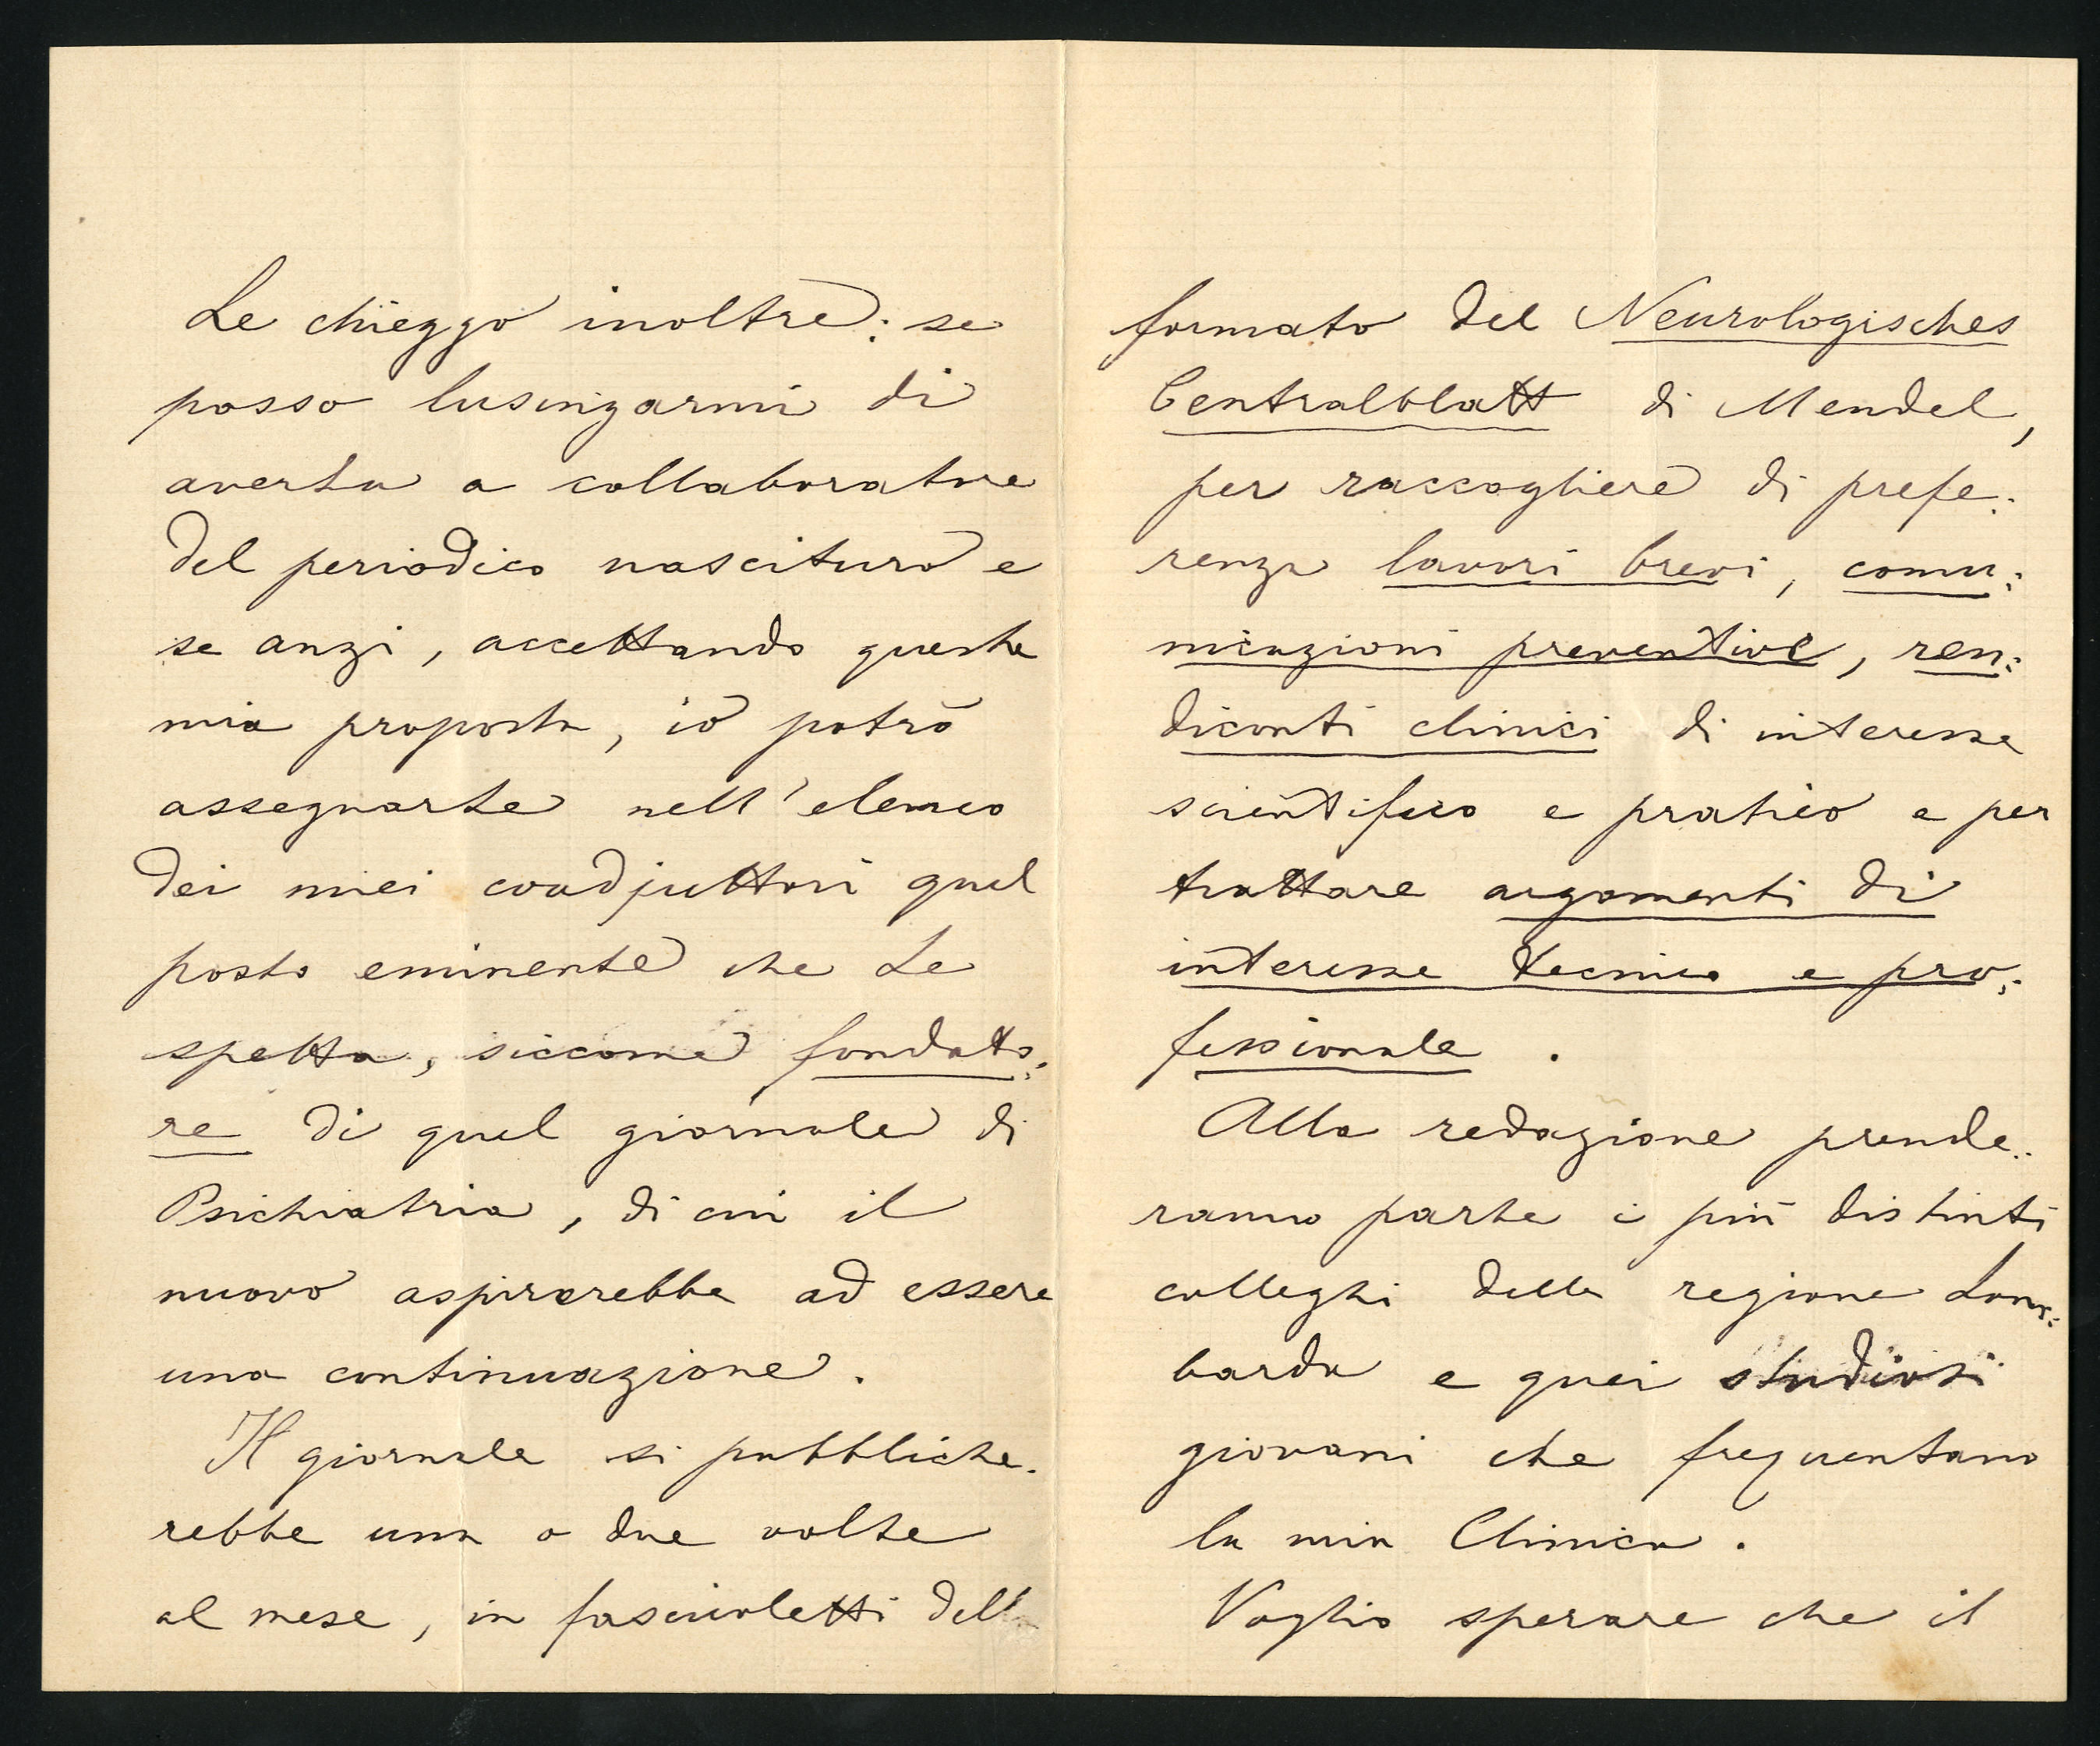 Le chieggo inoltre: se
posso lusingarmi di
averla a collaboratore
del periodico nascituro e
se anzi, accettando questa
mia proposta, io potrò
assegnarle nell'elenco
dei miei coadjuttori quel
posto eminente che Le
spetta, siccome fondato:
re di quel giornale di
Psichiatria, di cui il
nuovo aspirerebbe ad essere
una continuazione.
Il giornale si pubbliche:
rebbe una o due volte
al mese, in fascicoletti del
formato del Neurologisches
Centralblatt di Mendel,
per raccogliere di prefe:
renza lavori brevi, comu:
nicazioni preventive, ren:
diconti clinici di interesse
scientifico e pratico e per
trattare argomenti di
interesse tecnico e pro:
fessionale.
Alla redazione prende:
ranno parte i più distinti
colleghi della regione Lom:
barda e quei studiosi
giovani che frequentano
la mia Clinica.
Voglio sperare che il